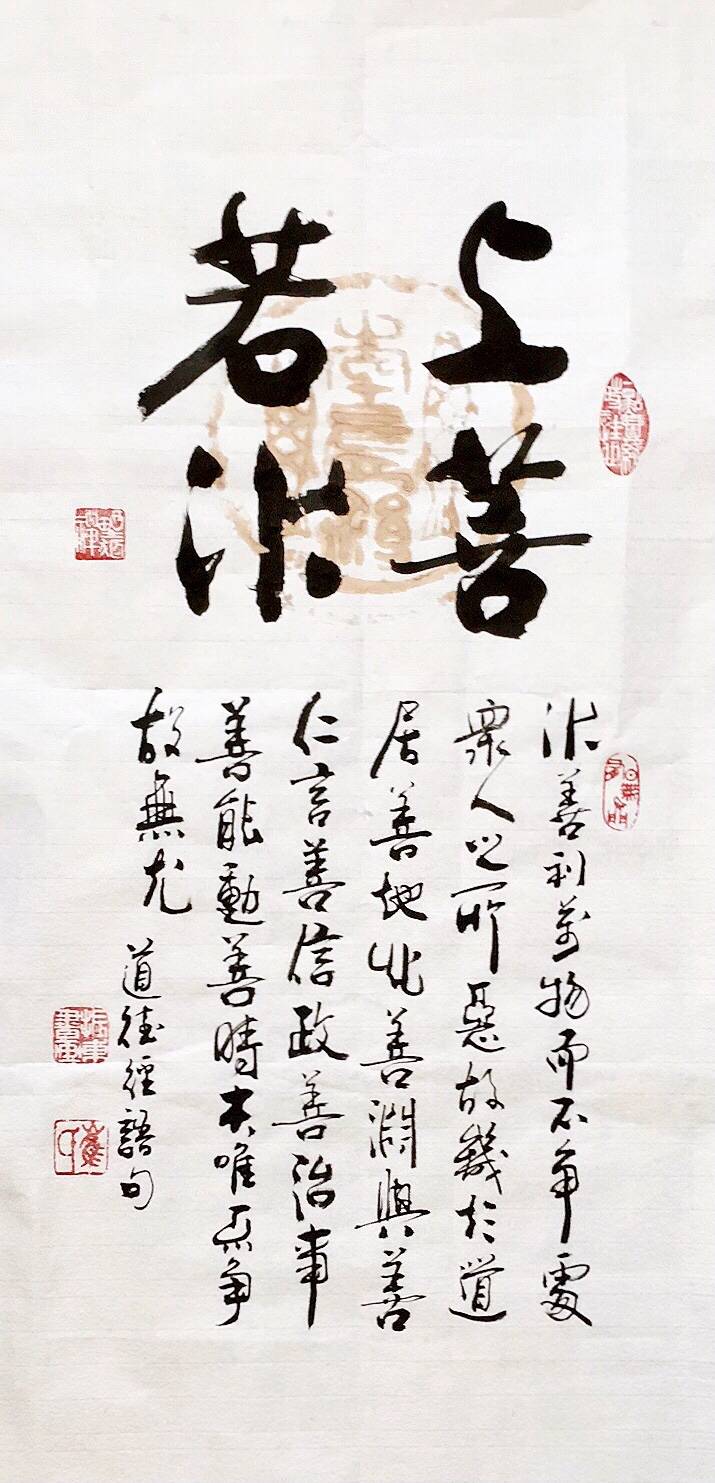 上善
若水
水善利萬物而不争處
衆人之所惡故幾於道
居善地心善淵與善
仁言善信政善治事
善能動善時夫唯不争
故無尤
道德經語句